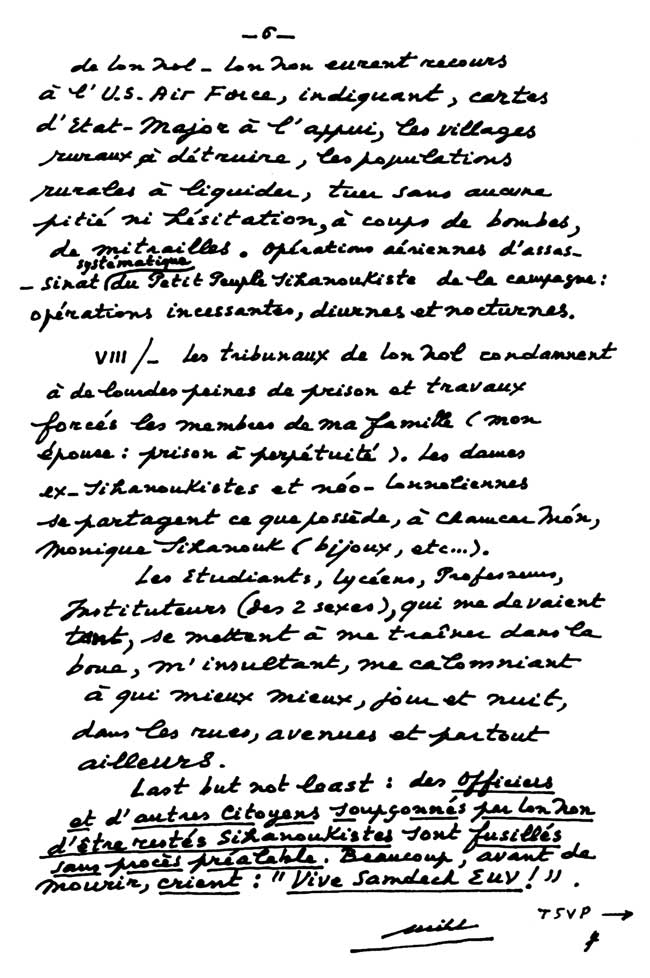 – 6 –
de Lon Nol – Lon Non eurent recours
à l'U.S. Air Force, indiquant, cartes
d'Etat-Major à l'appui, les villages
ruraux à détruire, les populations
rurales à liquider, tuer sans aucune
pitié ni hésitation, à coups de bombes,
de mitrailles. Opérations aériennes d'assas-
systématique
- sinat du Petit Peuple Sihanoukiste de la campagne :
opérations incessantes, diurnes et nocturnes.
VIII /- Les tribunaux de Lon Nol condamnent
à de lourdes peines de prison et travaux
forcés les membres de ma famille ( mon
épouse : prison à perpétuité ). Les dames
ex-Sihanoukistes et néo-Lonnoliennes
se partagent ce que possède, à Chamcar Môn,
Monique Sihanouk ( bijoux, etc...).
Les Etudiants, lycéens, Professeurs,
Instituteurs (des 2 sexes), qui me devaient
tant, se mettent à me traîner dans la
boue, m'insultant, me calomniant
à qui mieux mieux, jour et nuit,
dans les rues, avenues et partout
ailleurs.
Last but not least : des Officiers
et d'autres Citoyens soupçonnés par Lon Non
d'être restés Sihanoukistes sont fusillés
sans procès préalable. Beaucoup, avant de
mourir, crient : "Vive Samdech Euv !".
TSVP →